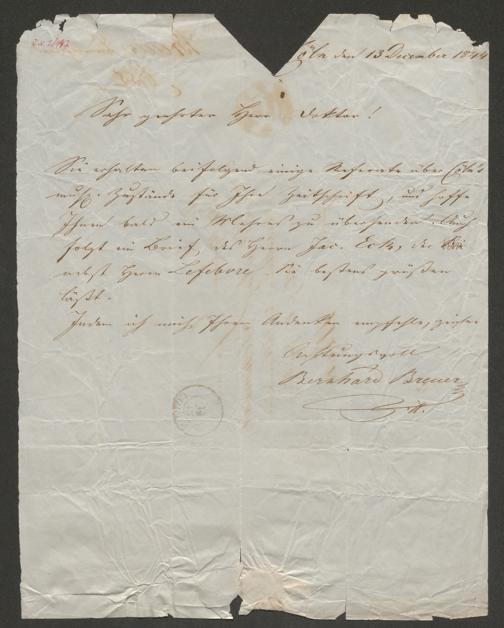 Cöln den 13 December 1844
Sehr geehrter Herr Doktor!
Sie erhalten beifolgend einige Referate über Cöln's
musik. Zustände für Ihre Zeitschrift, und hoffe
Ihnen bald ein Mehres zu übersenden. Auch
folgt ein Brief des Herrn Jac. Eck, der
nebst Herrn Lefebvre Sie bestens grüßen
läßt.
Indem ich mich Ihrem Andenken empfehle, zeichne
Achtungsvoll
Bernhard Breuer